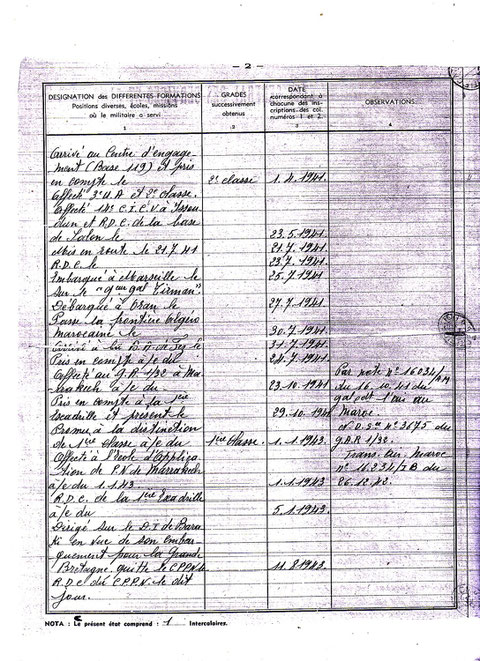 — 2 —
DESIGNATION des DIFFERENTES FORMATIONS
Positions diverses, écoles, missions
où le militaire a servi
1
GRADES
successivement
obtenus
2
DATE
correspondant à
chacune des ins-
criptions des col.
numéros 1 et 2.
3
OBSERVATIONS
4
Arrivé au Centre d'engage-
ment (Base 119) et pris
en compte le 2e classe 1.4.1941.
Affecté 3e U.A et 2e classe.
Affecté 143 C.I.C.V. à Issou-
dun et R.D.C. de la base
de Salon le 23.5.1941.
Mis en route le 21.7.41 21.7.1941.
R.D.C. le 23.7.1941.
Embarqué à Marseille le 25.7.1941
sur le "Gal Tirman".
Débarqué à Oran le 27.7.1941.
Passe la frontière algéro
marocaine le 30.7.1941
31.7.1941.
Pris en compte à/c du 24.7.1941
Affecté au G.R. 1/32 à Ma-
rrakech à/c du 23.10.1941
Pris en compte à la 1ère
escadrille et présent le 29.10.1941
Promu à la distinction
de 1ère classe à/c du 1ère classe. 1.1.1943.
Affecté à l'école d'applica-
tion de P.N. de Marrakech
à/c du 1.1.43 1.1.1943
R.D.C. de la 1ère Escadrille
à/c du 5.1.1943.
Dirigé sur le D.I. de Bara-
ki en vue de son embar-
quement pour la Grande
Bretagne quitte le C.P.P.N. le 11.8.1943.
R.D.C. du C.P.P.N. le dit
jour.
Par note n° 16034/
du 16.10.41 du
gal cdt l'air au
Maroc.
n° 3175 du
G.R 1/32.
Trans. Air Maroc
n° 11.234/7B du
26.12.42.
NOTA : Le présent état comprend : 1 Intercalaires.